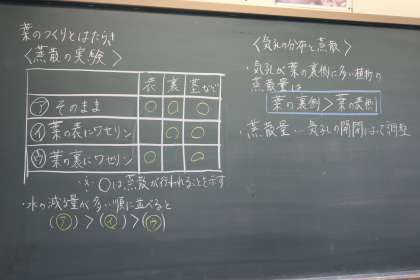 葉のつくりとはたらき
〈蒸散の実験〉
表 裏 茎など
㋐ そのまま ○ ○ ○
㋑ 葉の表にワセリン ○ ○
㋒ 葉の裏にワセリン ○ ○
※ ○は蒸散が行われることを示す
・水の減る量が多い順に並べると
(㋐) > (㋑) > (㋒)
〈気孔の分布と蒸散〉
・気孔が葉の裏側に多い植物の
蒸散量は
葉の裏側 > 葉の表側
・蒸散量…気孔の開閉によって調整